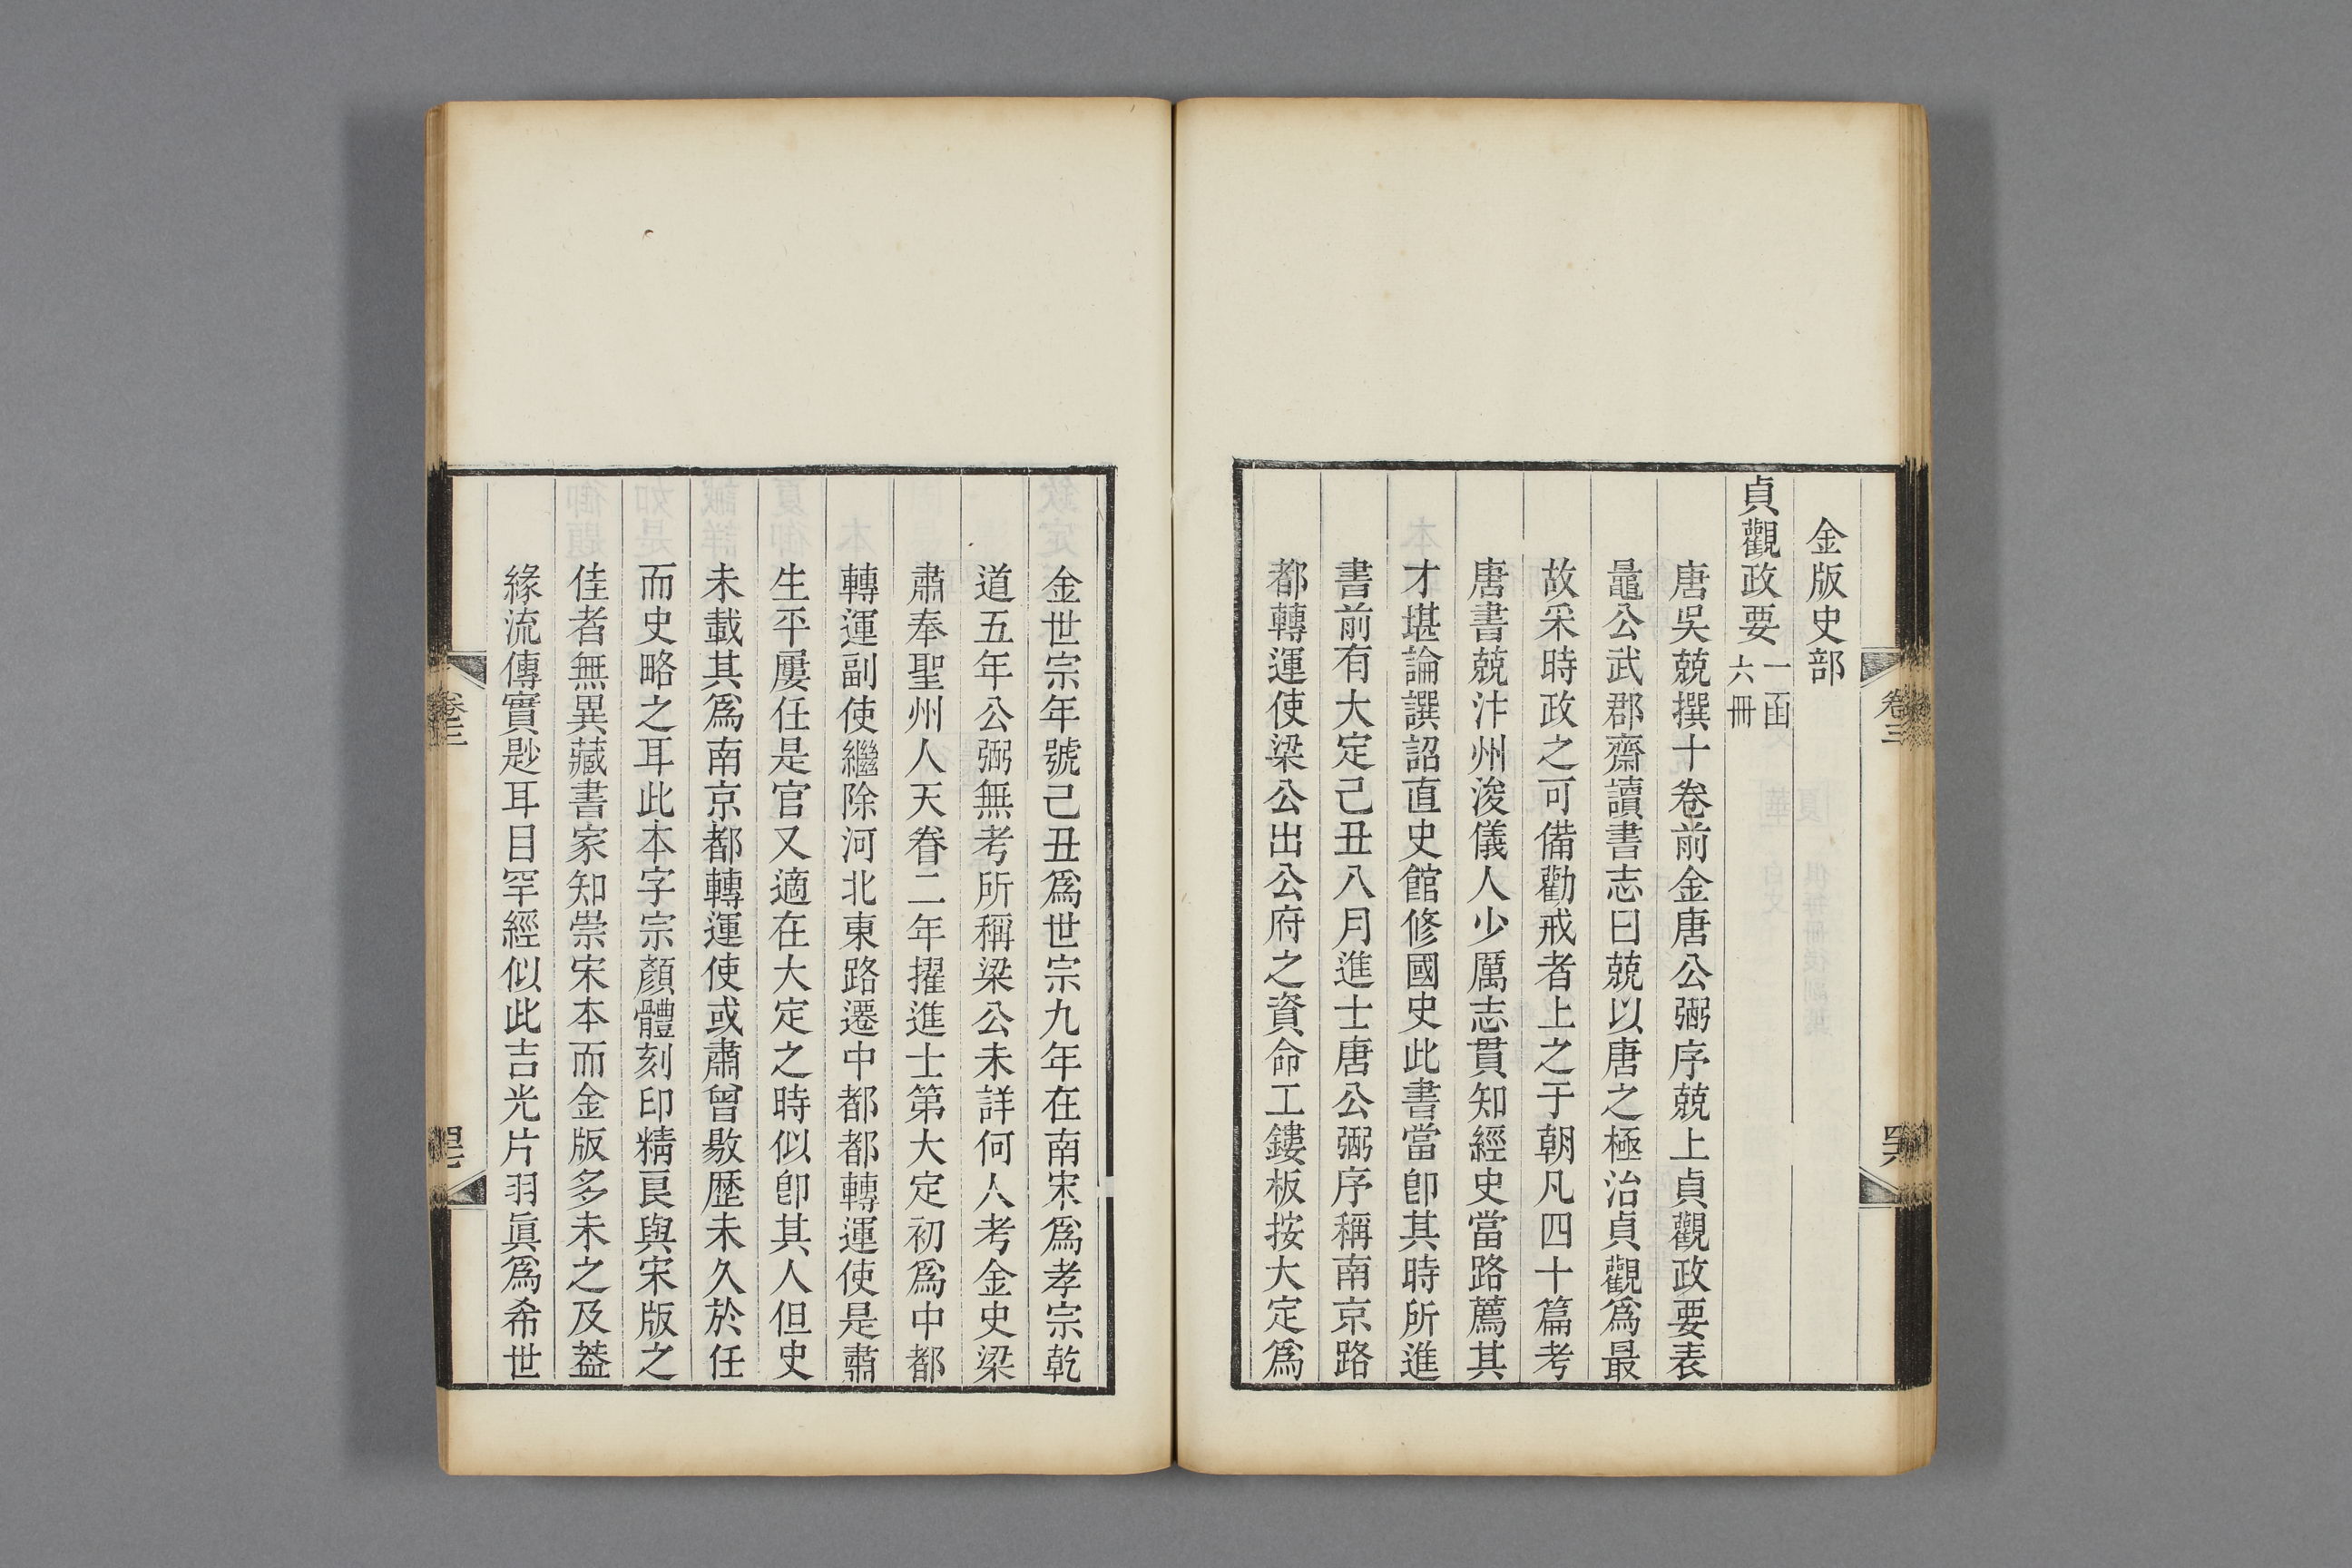 金版史部
貞觀政要一函六冊
唐吳兢撰十卷前金唐公弼序兢上貞觀政要表
鼂公武郡齋讀書志曰兢以唐之極治貞觀爲最
故采時政之可備勸戒者上之于朝凡四十篇考
唐書兢汴州浚儀人少厲志貫知經史當路薦其
才堪論譔詔直史館修國史此書當卽其時所進
書前有大定己丑八月進士唐公弼序稱南京路
都轉運使梁公出公府之資命工鏤板按大定爲
金世宗年號己丑爲世宗九年在南宋爲孝宗乾
道五年公弼無考所稱梁公未詳何人考金史梁
肅奉聖州人天眷二年擢進士第大定初爲中都
轉運副使繼除河北東路遷中都都轉運使是肅
生平屢任是官又適在大定之時似卽其人但史
未載其爲南京都轉運使或肅曾敭歷未久於任
而史略之耳此本字宗顏體刻印精良與宋版之
佳者無異藏書家知崇宋本而金版多未之及葢
緣流傳實尟耳目罕經似此吉光片羽眞爲希世
卷三
卷三